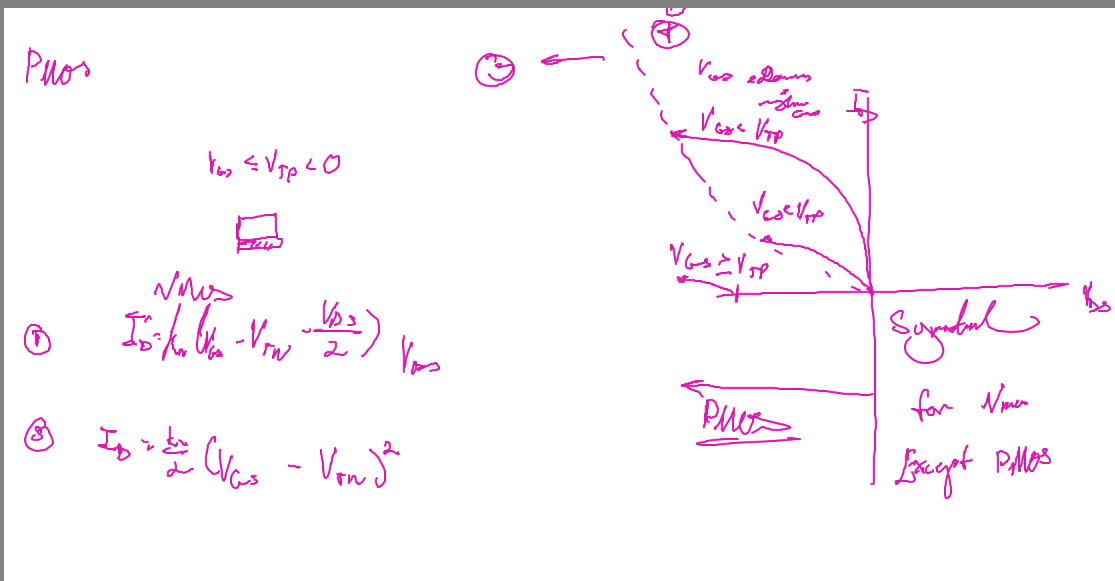 PMOS
V_GS ≤ V_TP < 0
NMOS
① I_D = k_n (V_GS - V_TN - V_DS/2) V_DS
③ I_D = k_n/2 (V_GS - V_TN)^2
V_GS
I_D
V_GS < V_TP
V_GS < V_TP
V_GS ≥ V_TP
V_DS
for Nmos
PMOS
Except PMOS